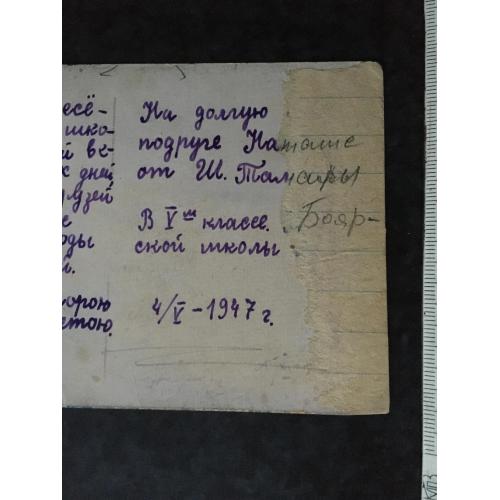 есё-
шко-
й ве-
х дней
рузей
е
оды
й.
орою
етою.
На долгую
подруге Наташе
от Ш. Тамары
В V ш классе. Бояр-
ской школы
4/V - 1947 г.